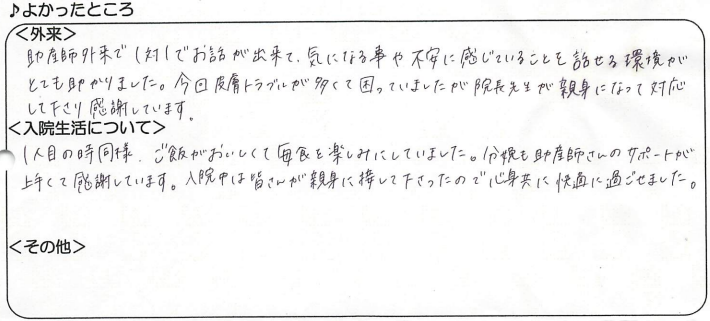 ♪よかったところ
＜外来＞
助産師外来で1対1でお話が出来て、気になる事や不安に感じていることを話せる環境が
とても助かりました。今回皮膚トラブルが多くて困っていましたが院長先生が親身になって対応
して下さり感謝しています。
＜入院生活について＞
1人目の時同様、ご飯がおいしくて毎食を楽しみにしていました。分娩も助産師さんのサポートが
上手くて感謝しています。入院中は皆さんが親身に接して下さったので心身共に快適に過ごせました。
＜その他＞